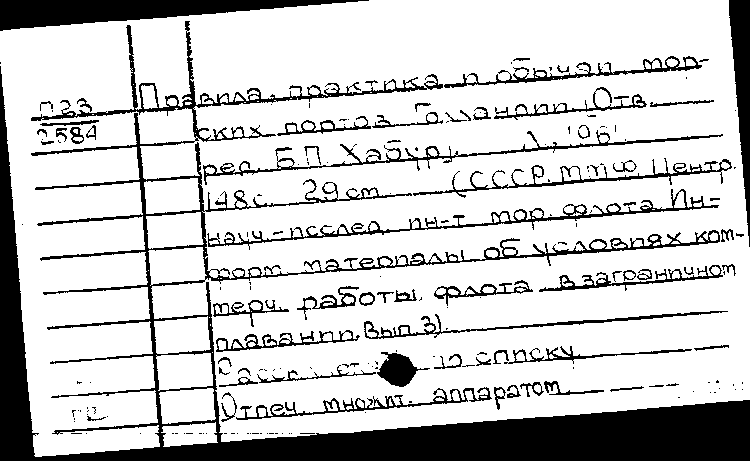 П23
2584
Правила, практика и обычаи мор-
ских портов Голландии. Отв.
ред. Б.П. Хабур. Л., 196
148 с. 29 cm (СССР. ММФ. Центр.
науч.-исслед. ин-т мор. флота. Ин-
форм. материалы об условиях ком-
мерч. работы флота в заграничном
плавании. Вып. 3)
по списку.
Отпеч. множит. аппаратом.